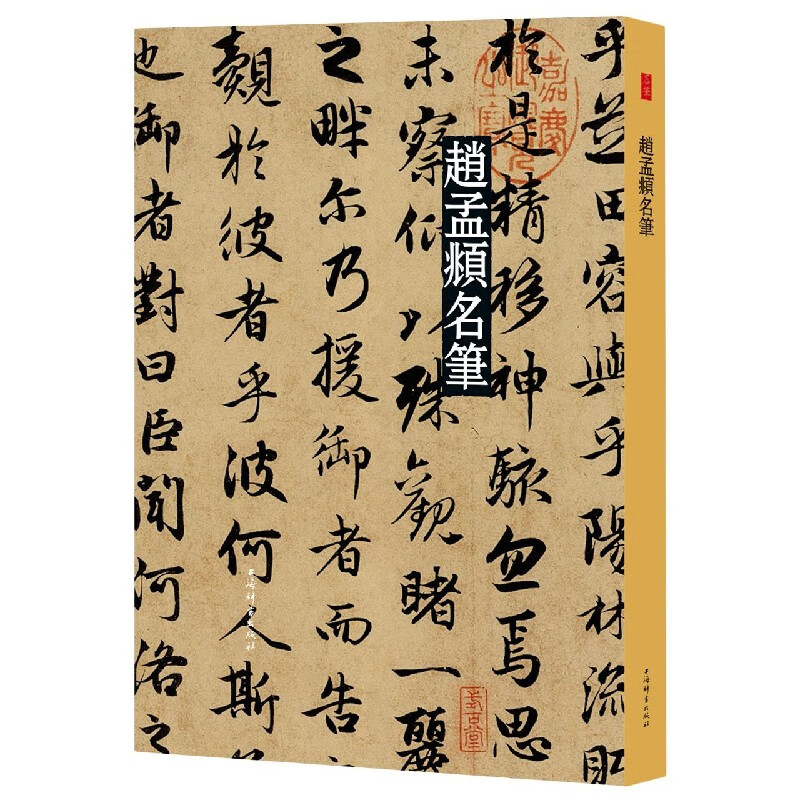 趙孟頫名筆
乎芝田容與乎陽林流眄
於是精移神駭忽焉思
未察仰以殊觀睹一麗
之畔尔乃援御者而告之
覿於彼者乎彼何人斯
也御者對曰臣聞河洛之
嘉慶御覽之寶
上海辭書出版社
名筆
趙孟頫名筆
上海辭書出版社